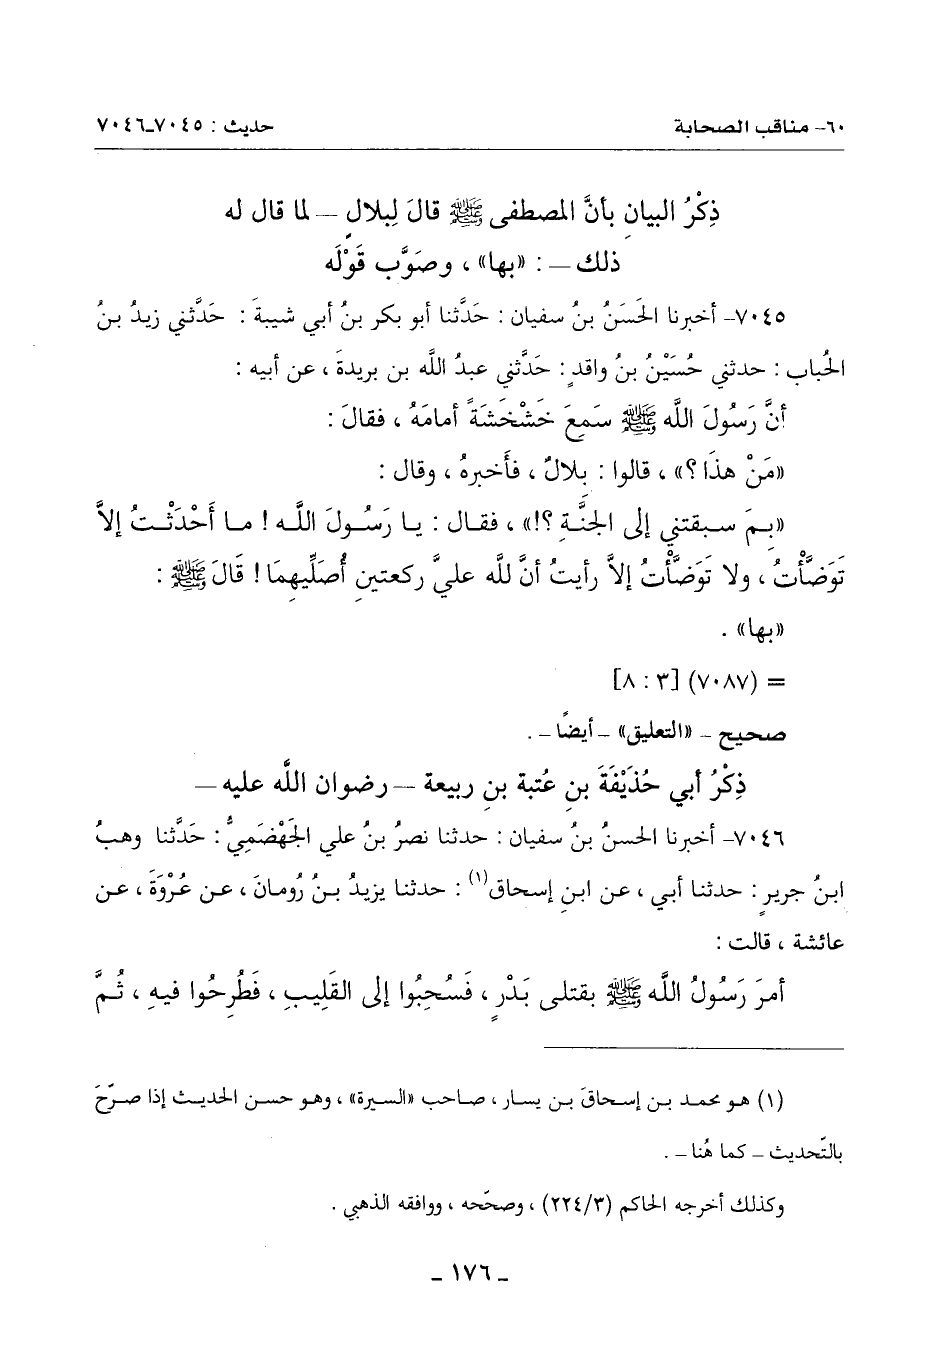 ٦٠- مناقب الصحابة حديث : ٧٠٤٥-٧٠٤٦
ذِكْرُ البيانِ بأنَّ المصطفى ﷺ قالَ لِبلالٍ – لما قال له
ذلك – : «بها» ، وصَوَّب قَوْلَه
٧٠٤٥- أخبرنا الحَسَنُ بنُ سفيان : حَدَّثنا أبو بكر بنُ أبي شيبةَ : حَدَّثني زيدُ بنُ
الحُباب : حدثني حُسَيْنُ بنُ واقدٍ : حَدَّثني عبدُ اللَّه بن بريدةَ ، عن أبيه :
أنَّ رَسُولَ اللَّه ﷺ سَمِعَ خَشْخَشَةً أمامَهُ ، فقالَ :
«مَنْ هذَا ؟» ، قالوا : بلالٌ ، فأَخبرهُ ، وقال :
«بِمَ سبقتني إلى الجنَّةِ ؟!» ، فقال : يا رَسُولَ اللَّه ! ما أَحْدَثْتُ إلاَّ
تَوَضَّأْتُ ، ولا تَوَضَّأْتُ إلاَّ رأيتُ أنَّ للَّه عليَّ ركعتينِ أُصَلِّيهِمَا ! قَالَ ﷺ :
«بها» .
= (٧٠٨٧) [٣ : ٨]
صحيح - «التعليق» - أيضًا - .
ذِكْرُ أبي حُذَيْفَةَ بنِ عُتبة بنِ ربيعة – رضوان اللَّه عليه –
٧٠٤٦- أخبرنا الحسنُ بنُ سفيان : حدثنا نصرُ بنُ علي الجَهْضَمِيُّ : حَدَّثنا وهبُ
ابنُ جريرٍ : حدثنا أبي ، عن ابنِ إسحاق(١) : حدثنا يزيدُ بنُ رُومانَ ، عن عُرْوَةَ ، عن
عائشة ، قالت :
أمرَ رَسُولُ اللَّه ﷺ بقتلى بَدْرٍ ، فَسُحِبُوا إلى القَلِيبِ ، فَطُرِحُوا فيهِ ، ثُمَّ
(١) هو محمد بن إسحاقَ بن يسار ، صاحب «السيرة» ، وهو حسن الحديث إذا صرَّحَ
بالتَّحديث - كما هُنا - .
وكذلك أخرجه الحاكم (٣/ ٢٢٤) ، وصحَّحه ، ووافقه الذهبي .
- ١٧٦ -